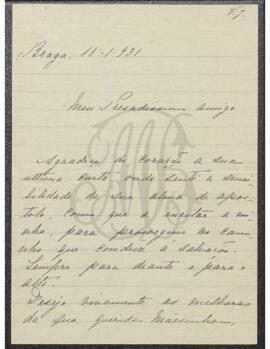 V. J.
Braga, 15-1-931
Meu Presadissimo Amigo
Agradeço de coração a sua
ultima carta, onde senti a sensi-
bilidade da sua alma de apos-
tolo, como que a incitar a mi-
nha, para proseguir no cami-
nho que conduz à salvação.
Sempre para deante e para o
alto.
Desejo vivamente as melhoras
da sua querida Mãesinha,